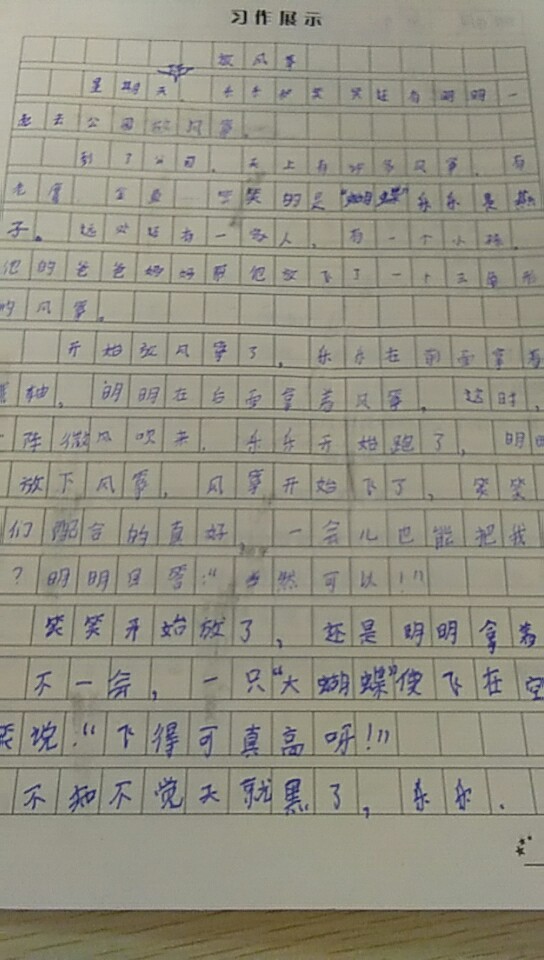 习作展示
放风筝
星期天,乐乐和笑笑还有明明一
起去公园放风筝。
到了公司,天上有许多风筝,有
老鹰 金鱼 笑的是“蝴蝶”乐乐是燕
子。远处还有一家人,有一个小孩,
他的爸爸妈妈帮他放飞了一个三角形
的风筝。
开始放风筝了,乐乐在前面拿着
轴,明明在后面拿着风筝,这时,
一阵微风吹来,乐乐开始跑了,明明
放下风筝,风筝开始飞了,笑笑
们配合的真好,一会儿也能把我
?明明回答:“当然可以!”
笑笑开始放了,还是明明拿着
不一会,一只“大蝴蝶”使飞在空
笑说:“飞得可真高呀!”
不知不觉天就黑了,乐乐.